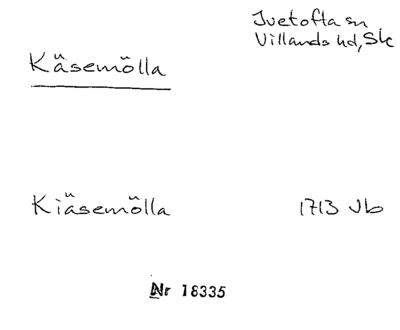 Ivetofta sn
Villands hd, Sk
Käsemölla
Kiäsemölla 1713 Jb
Nr 18335